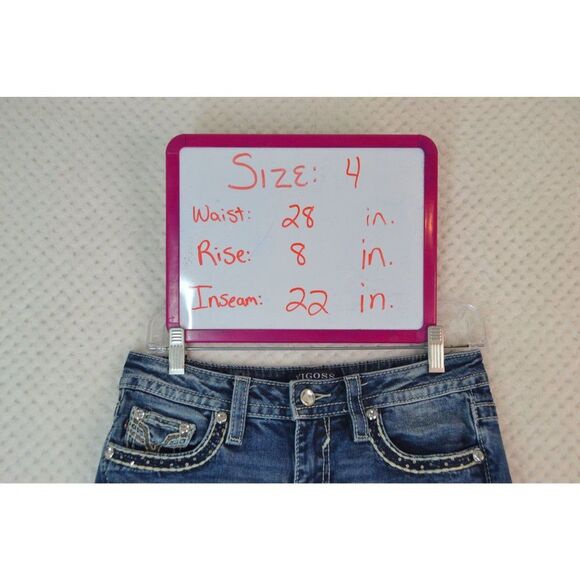 SIZE: 4
Waist: 28 in.
Rise: 8 in.
Inseam: 22 in.
VIGOSS